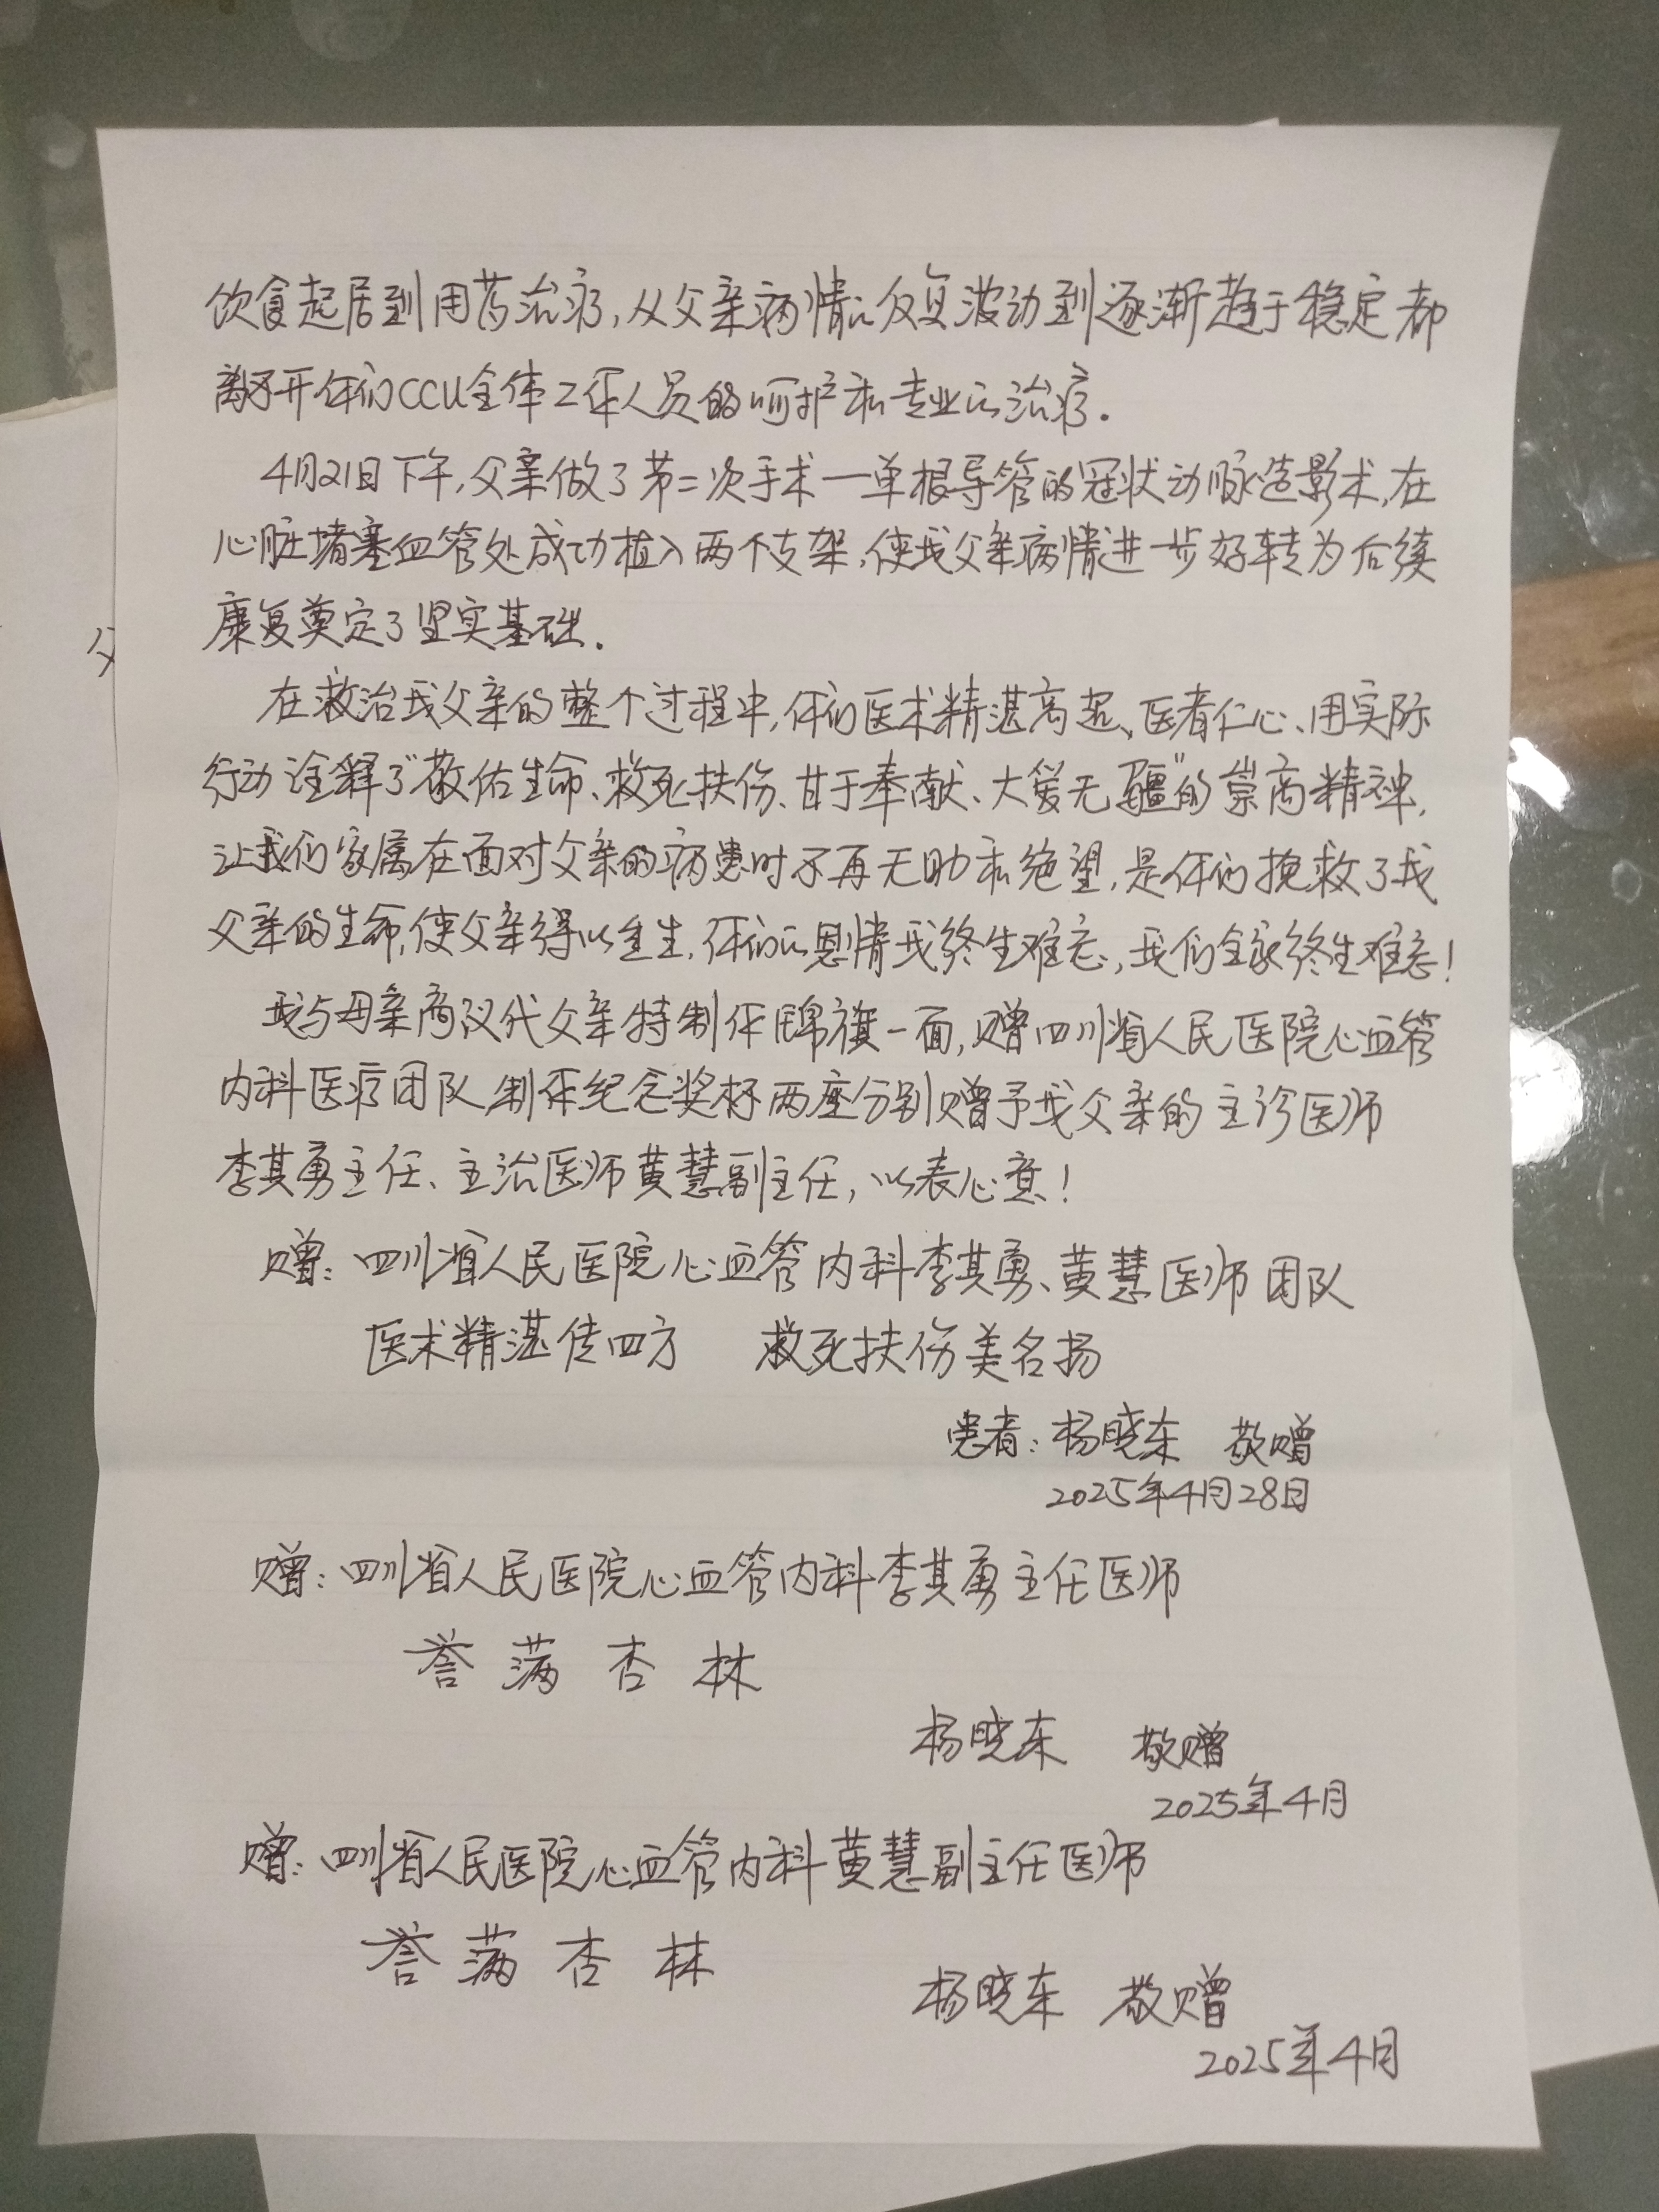 饮食起居到用药治疗,从父亲病情的反复波动到逐渐趋于稳定都
离不开你们CCU全体工作人员的呵护和专业的治疗.
4月21日下午,父亲做了第二次手术—单根导管的冠状动脉造影术,在
心脏堵塞血管处成功植入两个支架,使我父亲病情进一步好转为后续
康复奠定了坚实基础.
在救治我父亲的整个过程中,你们医术精湛高超、医者仁心、用实际
行动诠释了"敬佑生命、救死扶伤、甘于奉献、大爱无疆"的崇高精神,
让我们家属在面对父亲的病患时不再无助和绝望,是你们挽救了我
父亲的生命,使父亲得以重生,你们的恩情我终生难忘,我们全家终生难忘!
我与母亲商议代父亲特制作锦旗一面,赠四川省人民医院心血管
内科医疗团队,制作纪念奖杯两座分别赠予我父亲的主诊医师
李其勇主任、主治医师黄慧副主任,以表心意!
赠:四川省人民医院心血管内科李其勇、黄慧医师团队
医术精湛传四方 救死扶伤美名扬
患者:杨晓东 敬赠
2025年4月28日
赠:四川省人民医院心血管内科李其勇主任医师
誉满杏林
杨晓东 敬赠
2025年4月
赠:四川省人民医院心血管内科黄慧副主任医师
誉满杏林
杨晓东 敬赠
2025年4月
父